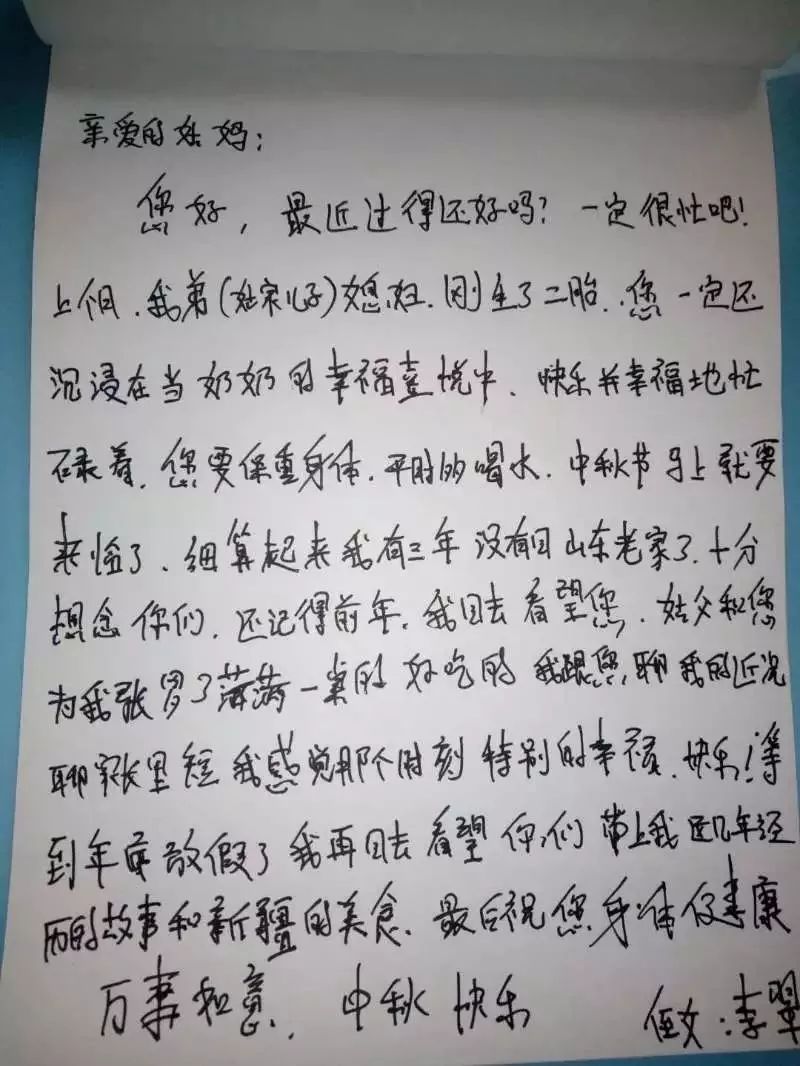 亲爱的姑妈：
您好，最近过得还好吗？一定很忙吧！
上个月，我弟(姑家儿子)媳妇，刚生了二胎，您一定还
沉浸在当奶奶的幸福喜悦中，快乐并幸福地忙
碌着，您要保重身体，平时多喝水，中秋节马上就要
来临了，细算起来我有三年没有回山东老家了，十分
想念你们，还记得前年，我回去看望您，姑父和您
为我张罗了满满一桌的好吃的我跟您聊我的近况
聊家长里短我感觉那个时刻特别的幸福、快乐！等
到年底放假了我再回去看望你们带上我这几年经
历的故事和新疆的美食、最后祝您身体健康
万事如意、中秋快乐 侄女：李翠